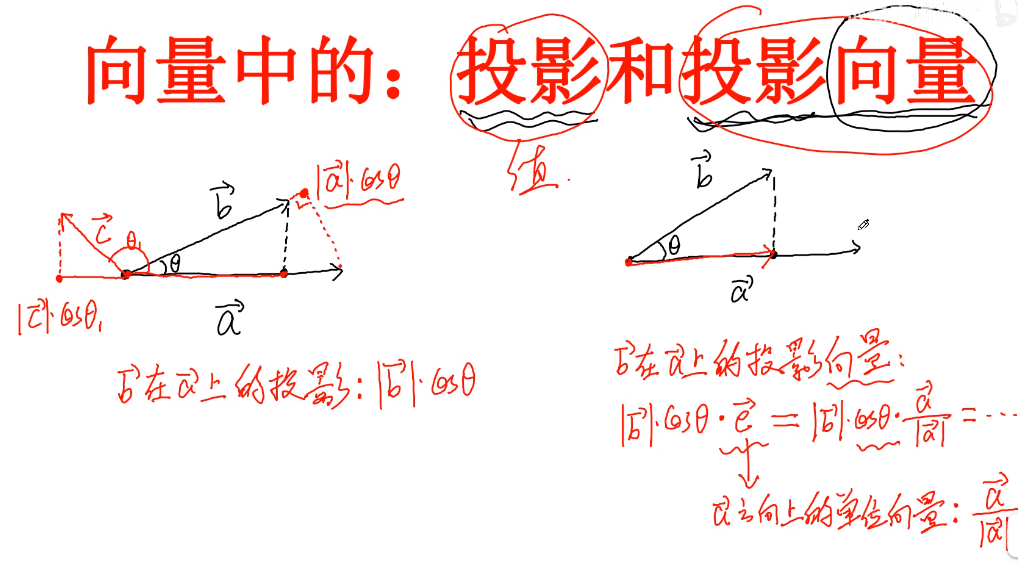 向量中的：投影和投影向量
值.
|a⃗|·cosθ
b⃗
c⃗
θ₁
θ
|c⃗|·cosθ₁
a⃗
b⃗在a⃗上的投影：|b⃗|·cosθ
b⃗
θ
a⃗
b⃗在a⃗上的投影向量：
|b⃗|·cosθ·e⃗ = |b⃗|·cosθ·a⃗/|a⃗| = ⋯
a⃗方向上的单位向量：a⃗/|a⃗|